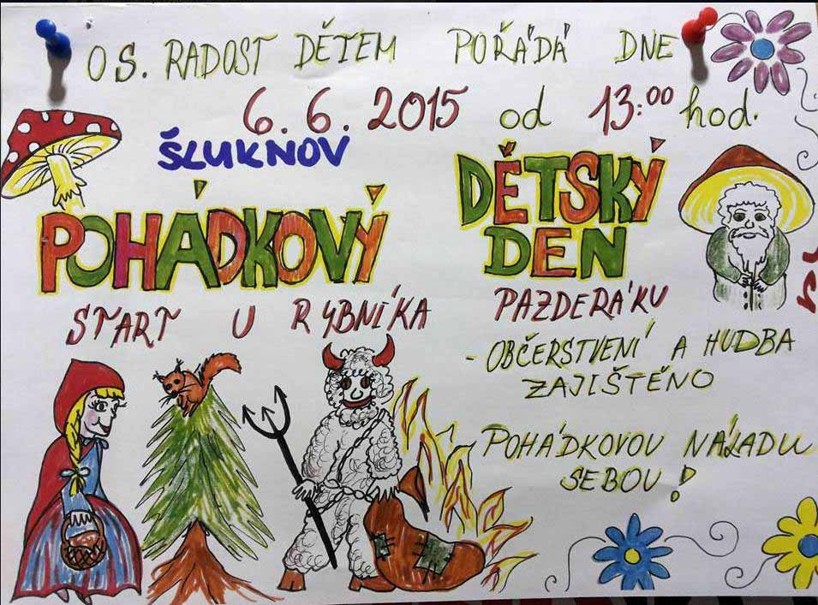 OS. RADOST DĚTEM POŘÁDÁ DNE
6. 6. 2015 od 13:00 hod.
ŠLUKNOV
POHÁDKOVÝ DĚTSKÝ DEN
START U RYBNÍKA PAZDERÁKU
- OBČERSTVENÍ A HUDBA
ZAJIŠTĚNO
POHÁDKOVOU NÁLADU
SEBOU!